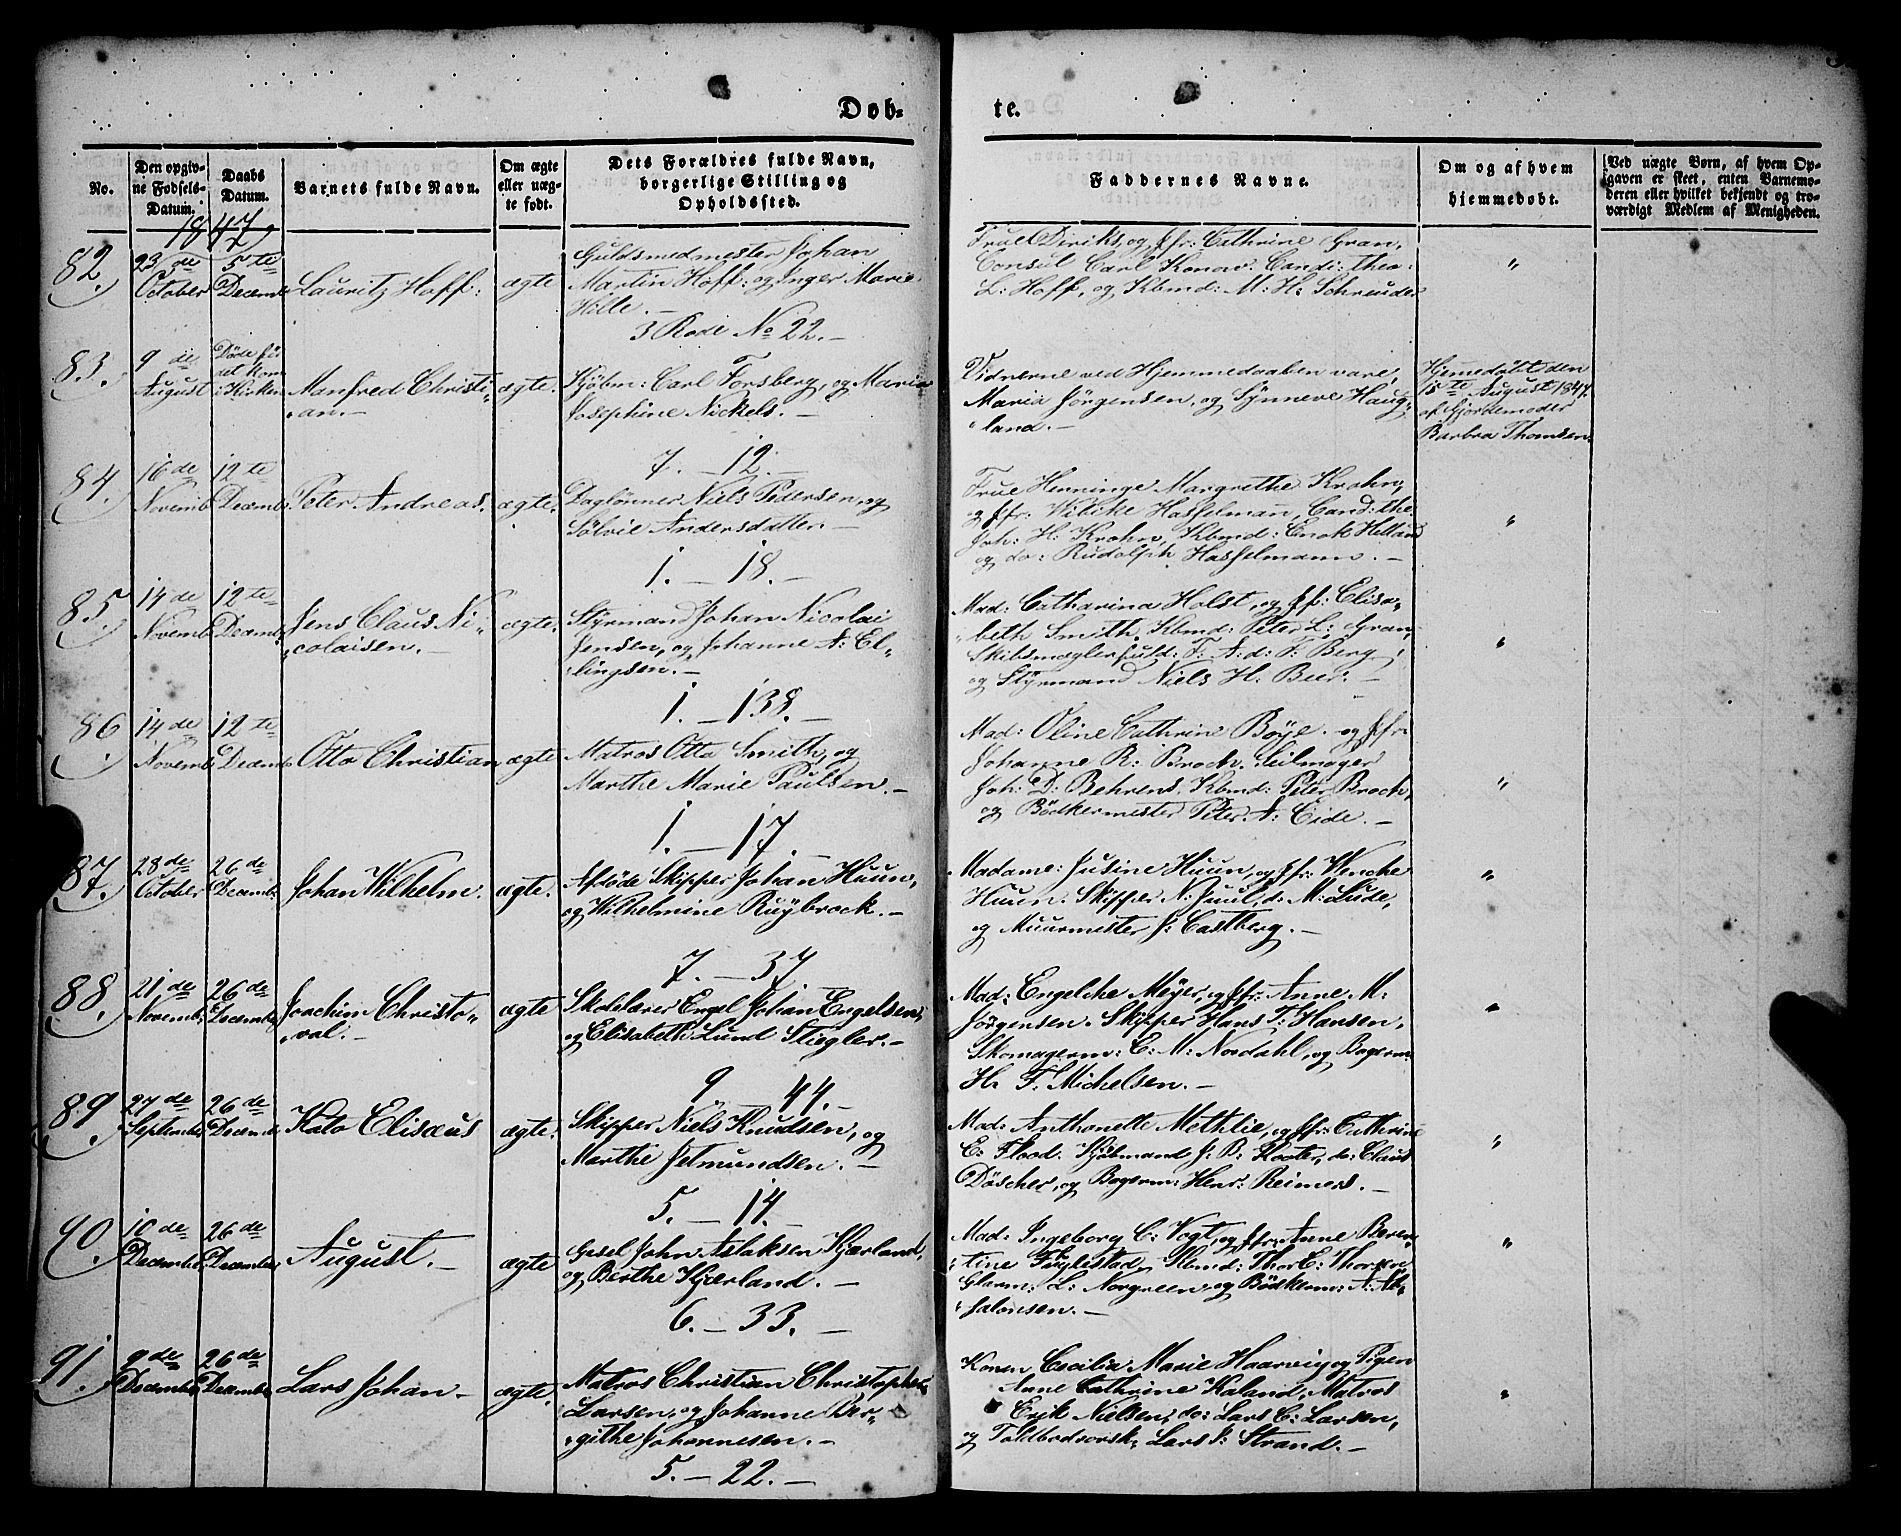 Døb=
te.
No.
Den opgiv-
ne Fødsels-
Datum.
Daabs
Datum.
Barnets fulde Navn.
Om ægte
eller uæg-
te født.
Dets Forældres fulde Navn,
borgerlige Stilling og
Opholdssted.
Faddernes Navne.
Om og af hvem
hjemmedøbt.
Ved uægte Børn, af hvem Op-
gaven er skeet, enten Barnemo-
deren eller hvilket bekjendt og tro-
værdigt Medlem af Menigheden.
1847
82.
23de
October
5te
Decemb
Lauritz Hoff:
ægte
Guldsmedmester Johan
Martin Hoff: og Inger Marie
Hille.—
3 Rode No 22.—
Frue Diriks, og Jfr: Cathrine Gran,
Consul Carl Konow. Candi: theo:
L: Hoff, og Kbmd: M: H: Schreuder
"
83.
9de
August
Døde før
det kom
i Kirken
Manfred Christi"
"an.—
ægte.
Kjøbm: Carl Forsberg, og Maria
Josephine Nickels.—
7.—12.—
Vidnerne ved Hjemmedaaben vare,
Maria Jörgensen, og Synneve Haug"
"land.—
Hjemedöbt den
15te August 1847.
af Gjordemoder
Barbra Thomsen.
84.
16de
Novemb
12te
Decemb.
Peter Andreas.
ægte.
Daglönner Niels Pedersen, og
Sölvie Andersdatter.—
1.—18.—
Frue Henninge Margrethe Krohn,
og Jfr: Vibike Hasselman, Cand: the
Joh: H: Krohn, Kbmd: Enok Helland
og do: Rudolph Hasselmann.—
"
85.
14de
Novemb
12te
Decemb.
Jens Claus Ni"
"colaisen.—
ægte.
Styrmand Johan Nicolai
Jensen, og Johanne A: El"
"lingsen.—
1.—138.—
Mad: Catharina Holst, og Jfr: Elisa"
"beth Smith, Kbmd: Peter L: Gran,
Skibsmæglerfuld: F: A: d: F: Berg,
og Styrmand Niels H. Buer.—
"
86.
14de
Novemb
12te
Decemb.
Otto Christian
ægte
Matros Otto Smith, og
Marthe Marie Paulsen.—
1.—17.
Mad: Oline Cathrine Böye. og Jfr:
Johanne R: Broch. Seilmager
Joh: D: Behrens. Kbmd: Peter Broch,
og Bödkermester Peter A: Eide.—
"
87.
28de
October
26de
Decemb.
Johan Wilhelm.
ægte.
Afdöde Skipper Johan Huun,
og Wilhelmine Ruybrock.—
7.—37
Madame: Jusine Huun, og Jfr: Wenche
Huun. Skipper N: Juul, do. M: Lude,
og Muurmester J: Castberg.—
"
88.
21de
Novemb.
26de
Decemb
Joachim Christo"
"val.—
ægte
Skolelærer Engel Johan Engelsen,
og Elisabeth Lund Stiegler.—
9 44.—
Mad: Engelche Meÿer, og Jfr: Anne M:
Jörgensen. Skipper Hans T: Hansen.
Skomagerm: C: M: Nordahl, og Bagerm
H. F. Michelsen.—
"
89.
27de
September
26de
Decemb
Kato Elisæus
ægte.
Skipper Niels Knudsen, og
Marthe Jetmundsen.—
5.—14.—
Mad: Anthonette Methlie, og Jfr: Cathrine
C: Flood. Kjöbmand J: B: Kooter, do: Claus
Döscher, og Bagerm: Henr: Reimers.—
"
90.
10de
December
26de
December
August.—
ægte
Gesel John Aslaksen Kjærland,
og Berthe Kjærland.—
6.—33.—
Mad: Ingeborg C: Vogt, og Jfr: Anne Beren"
"tine Fuglestad, Kbmd: Thor C: Thorsen
Glarm: L: Norgreen, og Bödkerm: A: Ab"
"salonsen.—
"
91.
9de
Decembr
26de
Decembr
Lars Johan—
ægte.
Matros Christian Christopher
Larsen, og Johanne Ber"
"githe Johannesen.—
5.—22.—
Konen Cecilia Marie Haarvig, og Pigen
Anne Cathrine Kaland, Matros
Erik Nielsen, do: Lars C: Larsen,
og Toldbodvorsk. Lars J: Strand.—
"